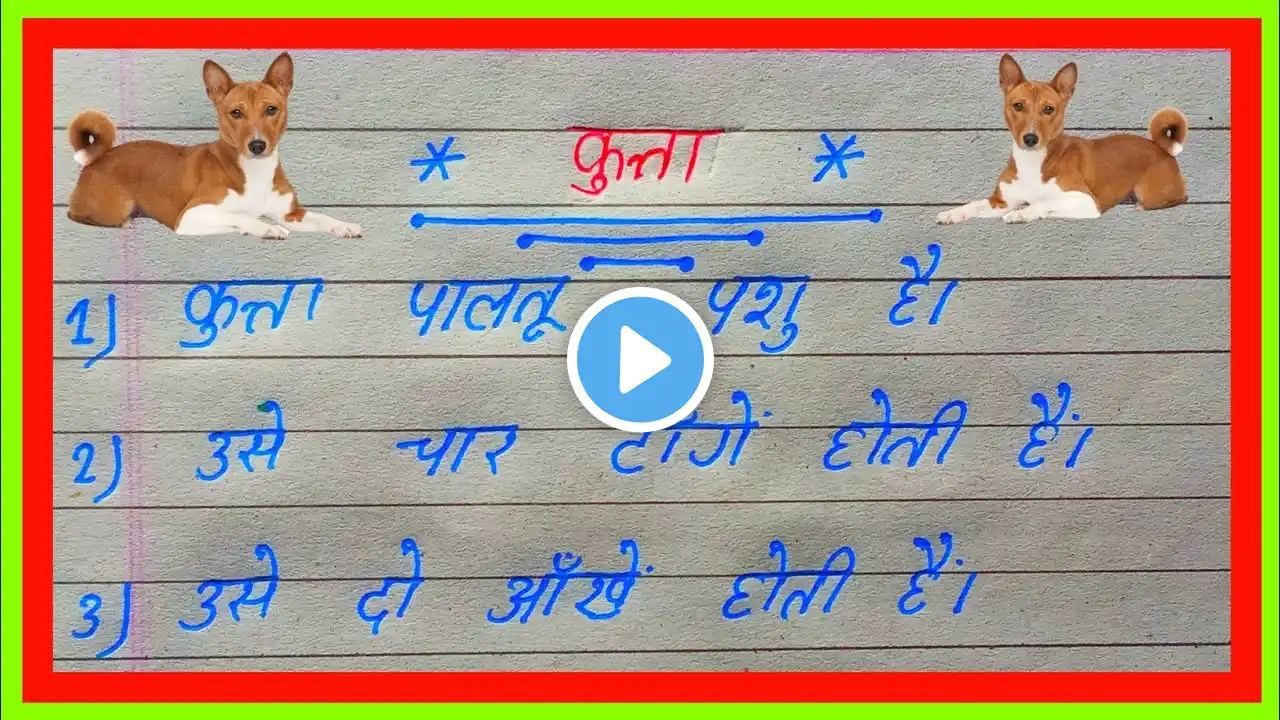 * कुत्ता *
1) कुत्ता पालतू पशु है।
2) उसे चार टाँगें होती हैं।
3) उसे दो आँखें होती हैं।